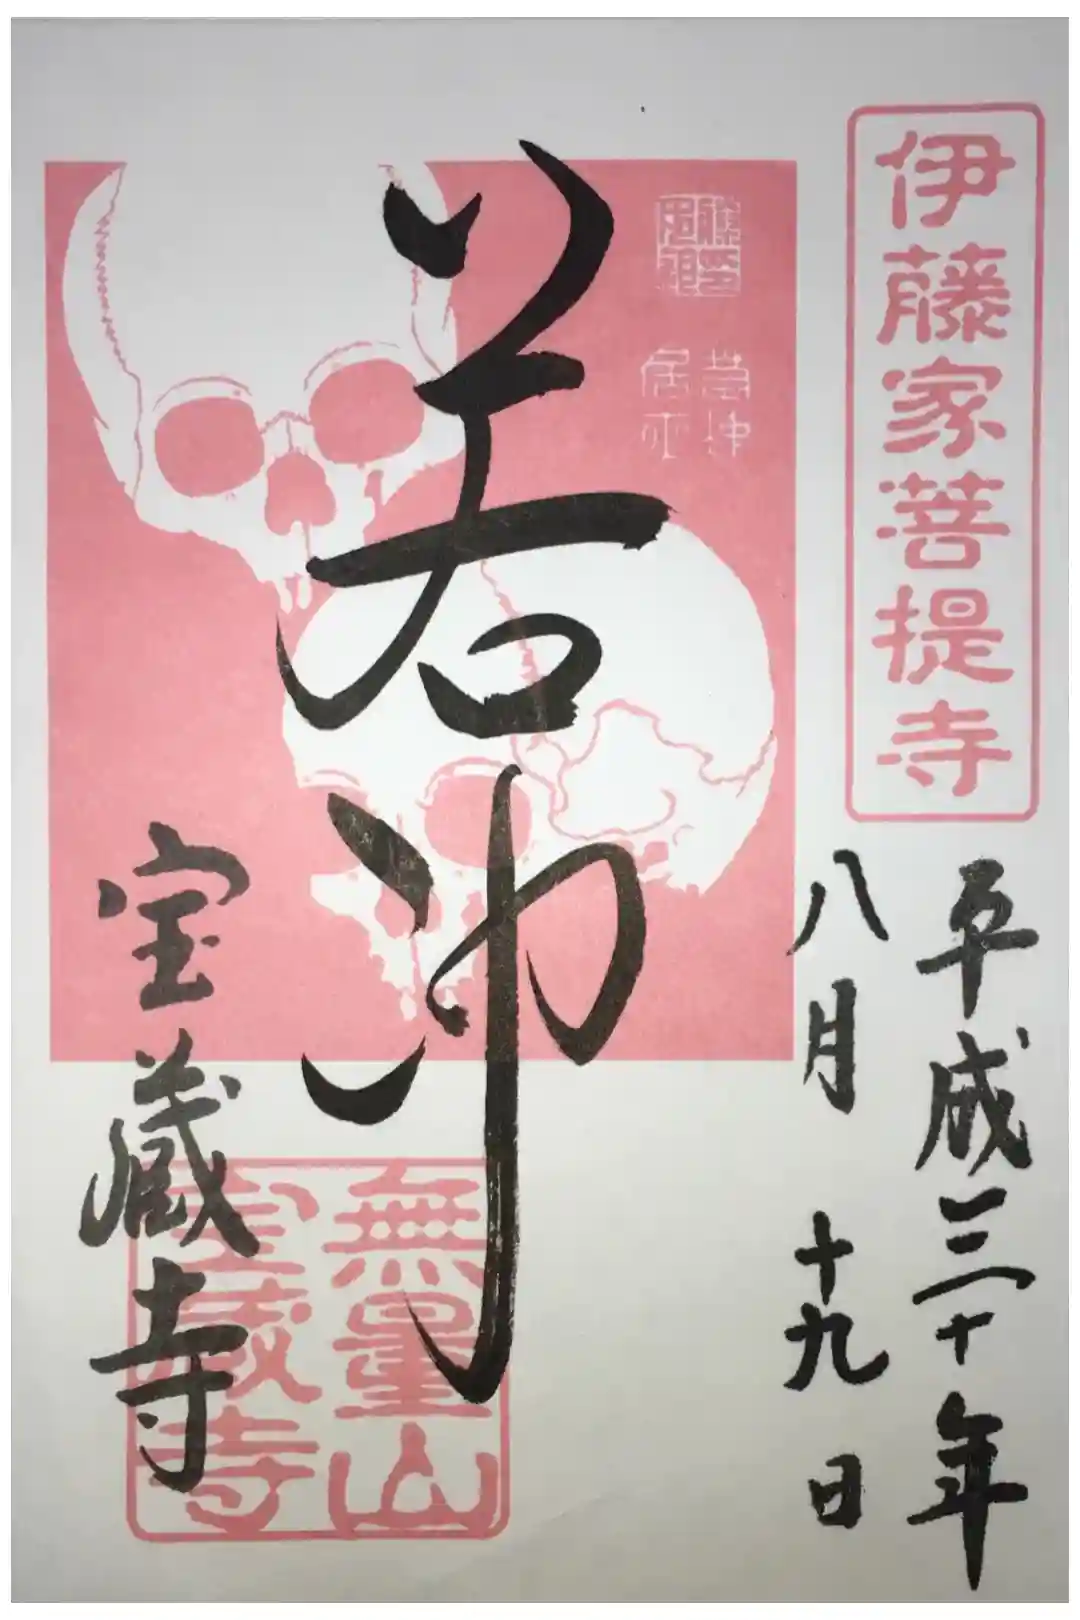 伊藤家菩提寺
平成三十年
八月十九日
若冲
無量山
宝蔵寺
宝蔵寺